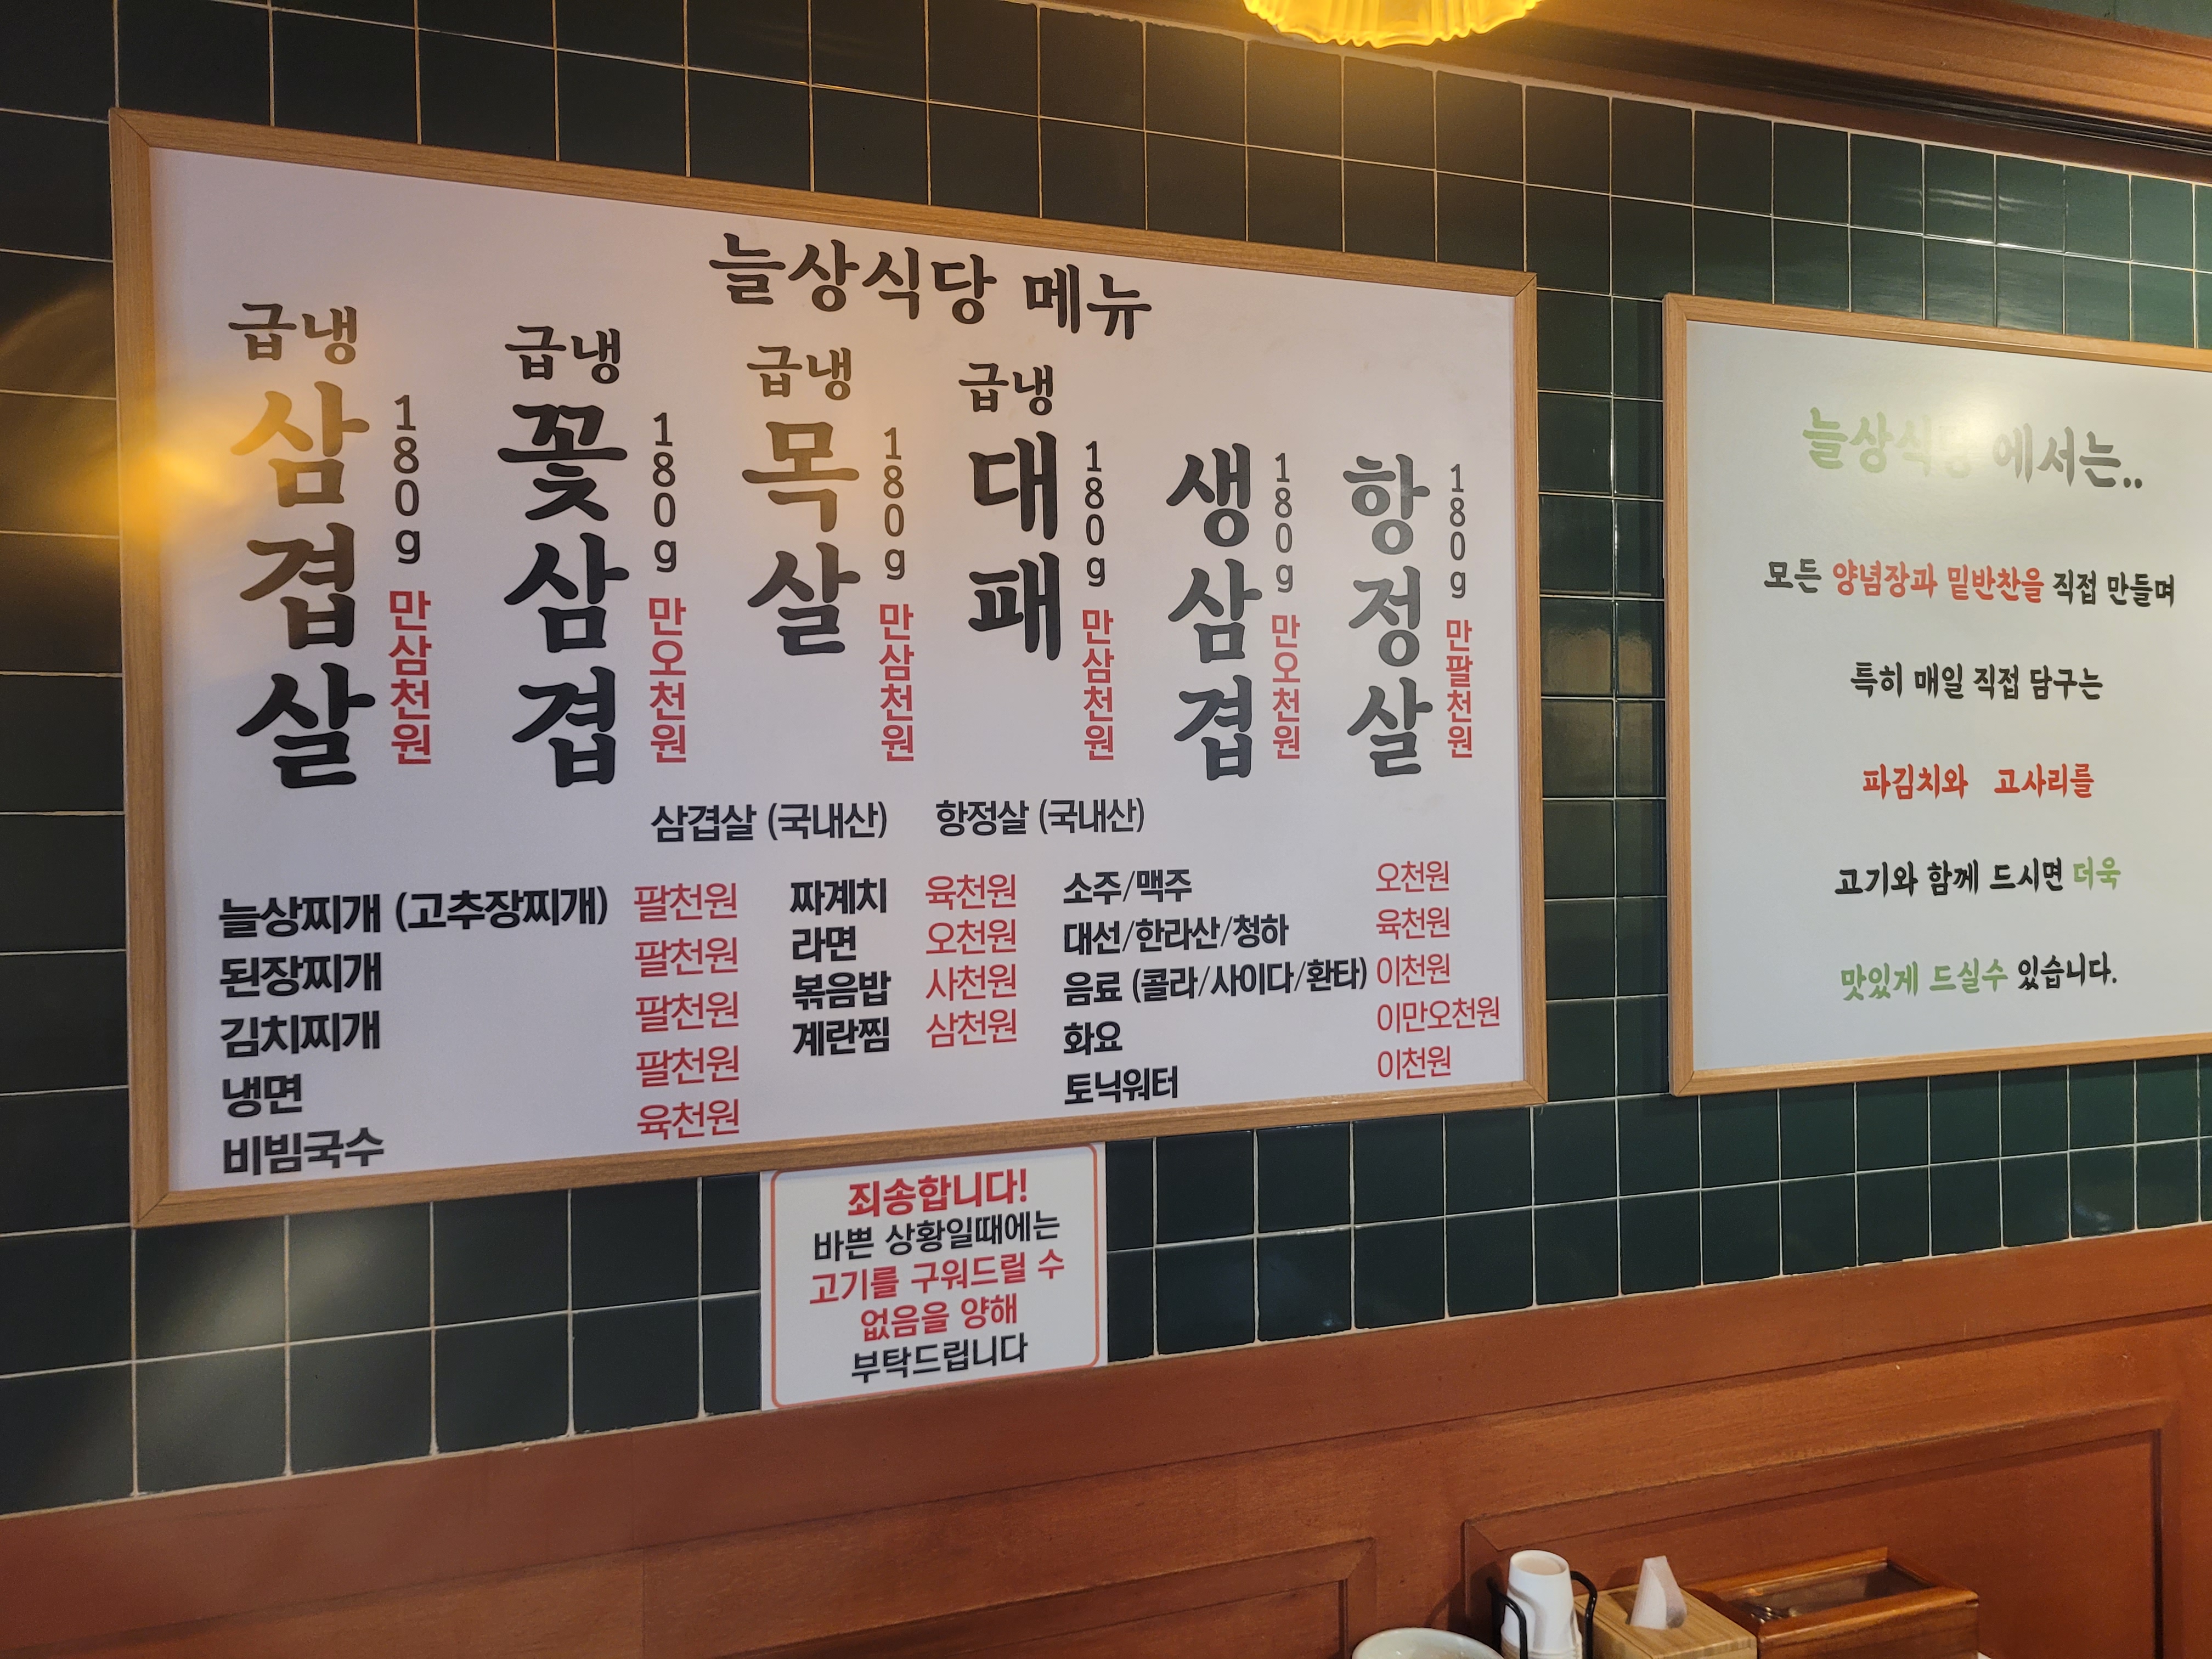 늘상식당 메뉴
급냉 삼겹살 180g 만삼천원
급냉 꽃삼겹 180g 만오천원
급냉 목살 180g 만삼천원
급냉 대패 180g 만삼천원
생삼겹 180g 만오천원
항정살 180g 만팔천원
삼겹살 (국내산) 항정살 (국내산)
늘상찌개 (고추장찌개) 팔천원
된장찌개 팔천원
김치찌개 팔천원
냉면 팔천원
비빔국수 육천원
짜계치 육천원
라면 오천원
볶음밥 사천원
계란찜 삼천원
소주/맥주 오천원
대선/한라산/청하 육천원
음료 (콜라/사이다/환타) 이천원
화요 이만오천원
토닉워터 이천원
죄송합니다!
바쁜 상황일때에는
고기를 구워드릴 수
없음을 양해
부탁드립니다
늘상식당 에서는..
모든 양념장과 밑반찬을 직접 만들며
특히 매일 직접 담구는
파김치와 고사리를
고기와 함께 드시면 더욱
맛있게 드실수 있습니다.